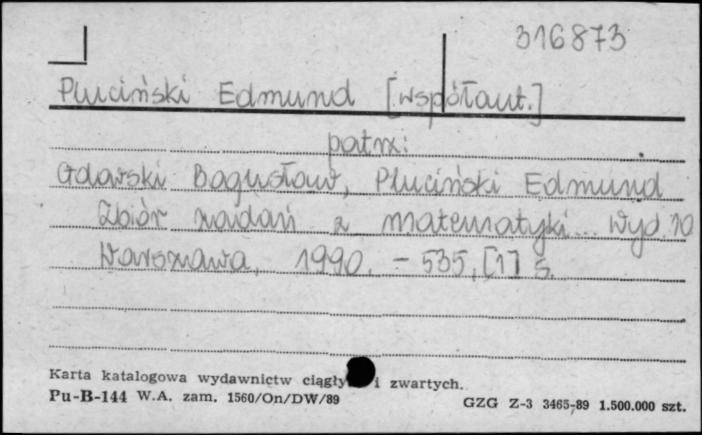 316873
Pluciński Edmund [współaut.]
patrz:
Gdowski Bogusław, Pluciński Edmund
Zbiór zadań z matematyki... Wyd. 10
Warszawa, 1990. - 535, [1] s.
Karta katalogowa wydawnictw ciągły i zwartych.
Pu-B-144 W.A. zam. 1560/On/DW/89
GZG Z-3 3465-89 1.500.000 szt.